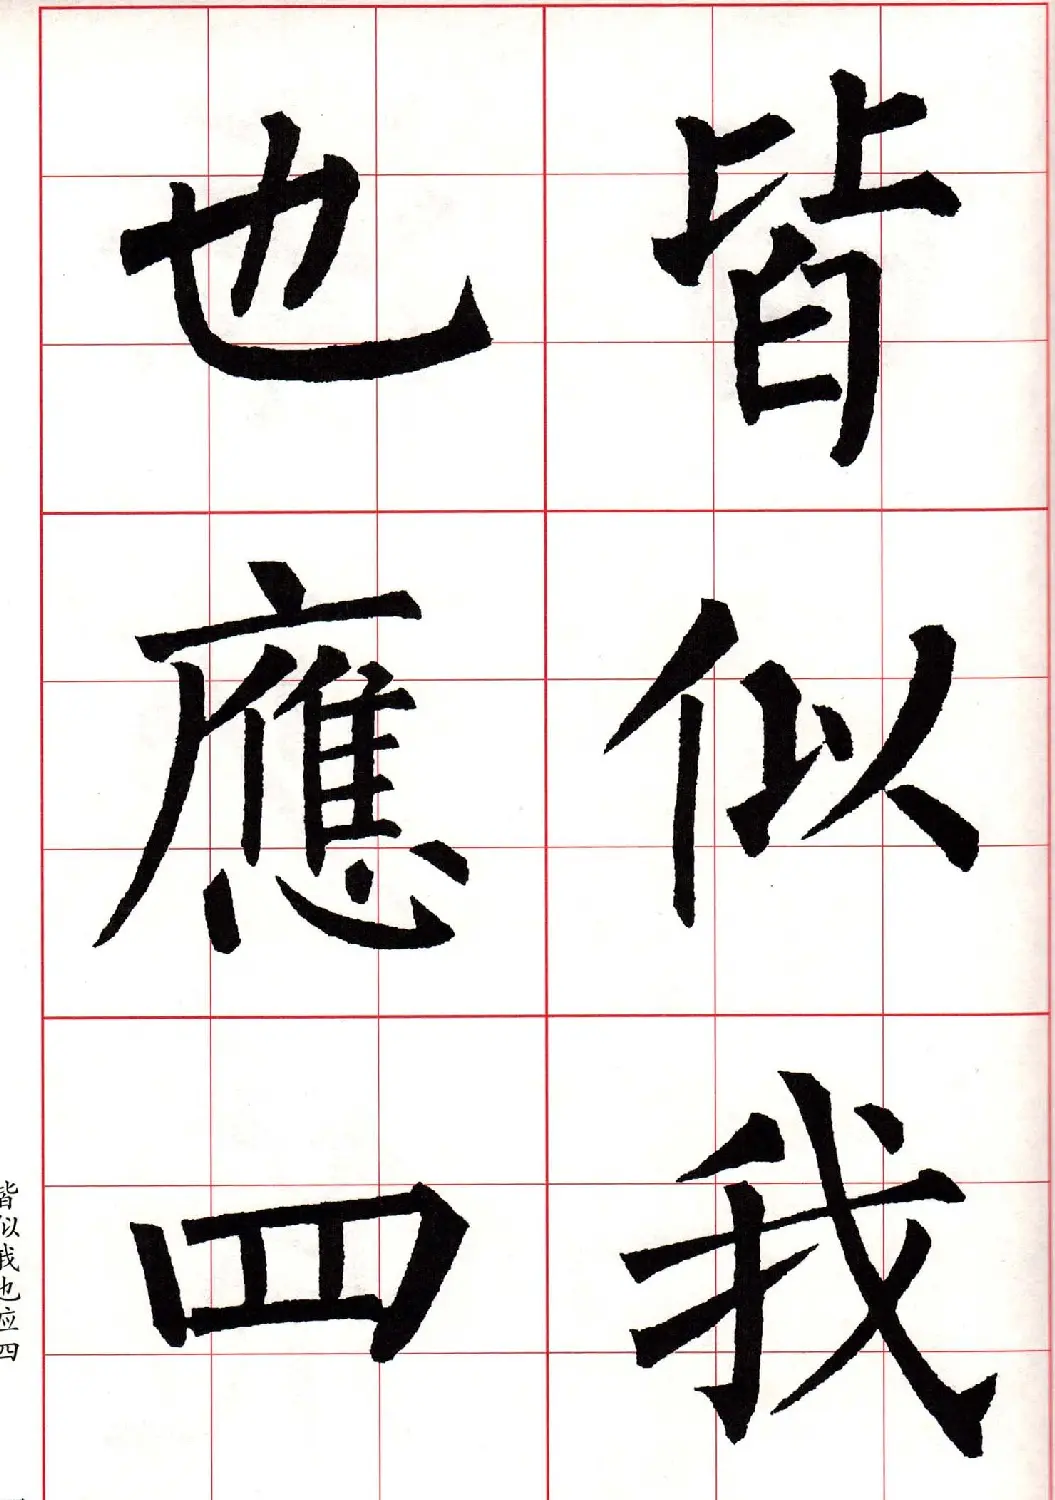 皆似我
也應四
皆似我也应四